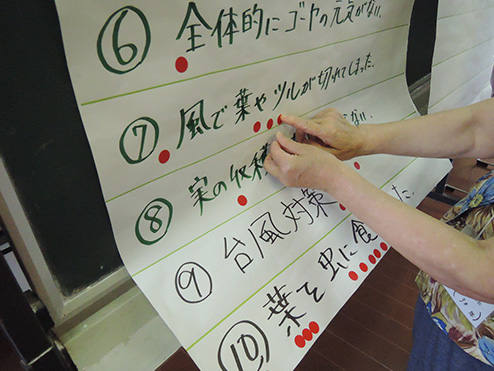 ⑥全体的にゴーヤの元気がない。
⑦風で葉やツルが切れてしまった。
⑧実の収穫 ない。
⑨台風対策
⑩葉を虫に食 た。